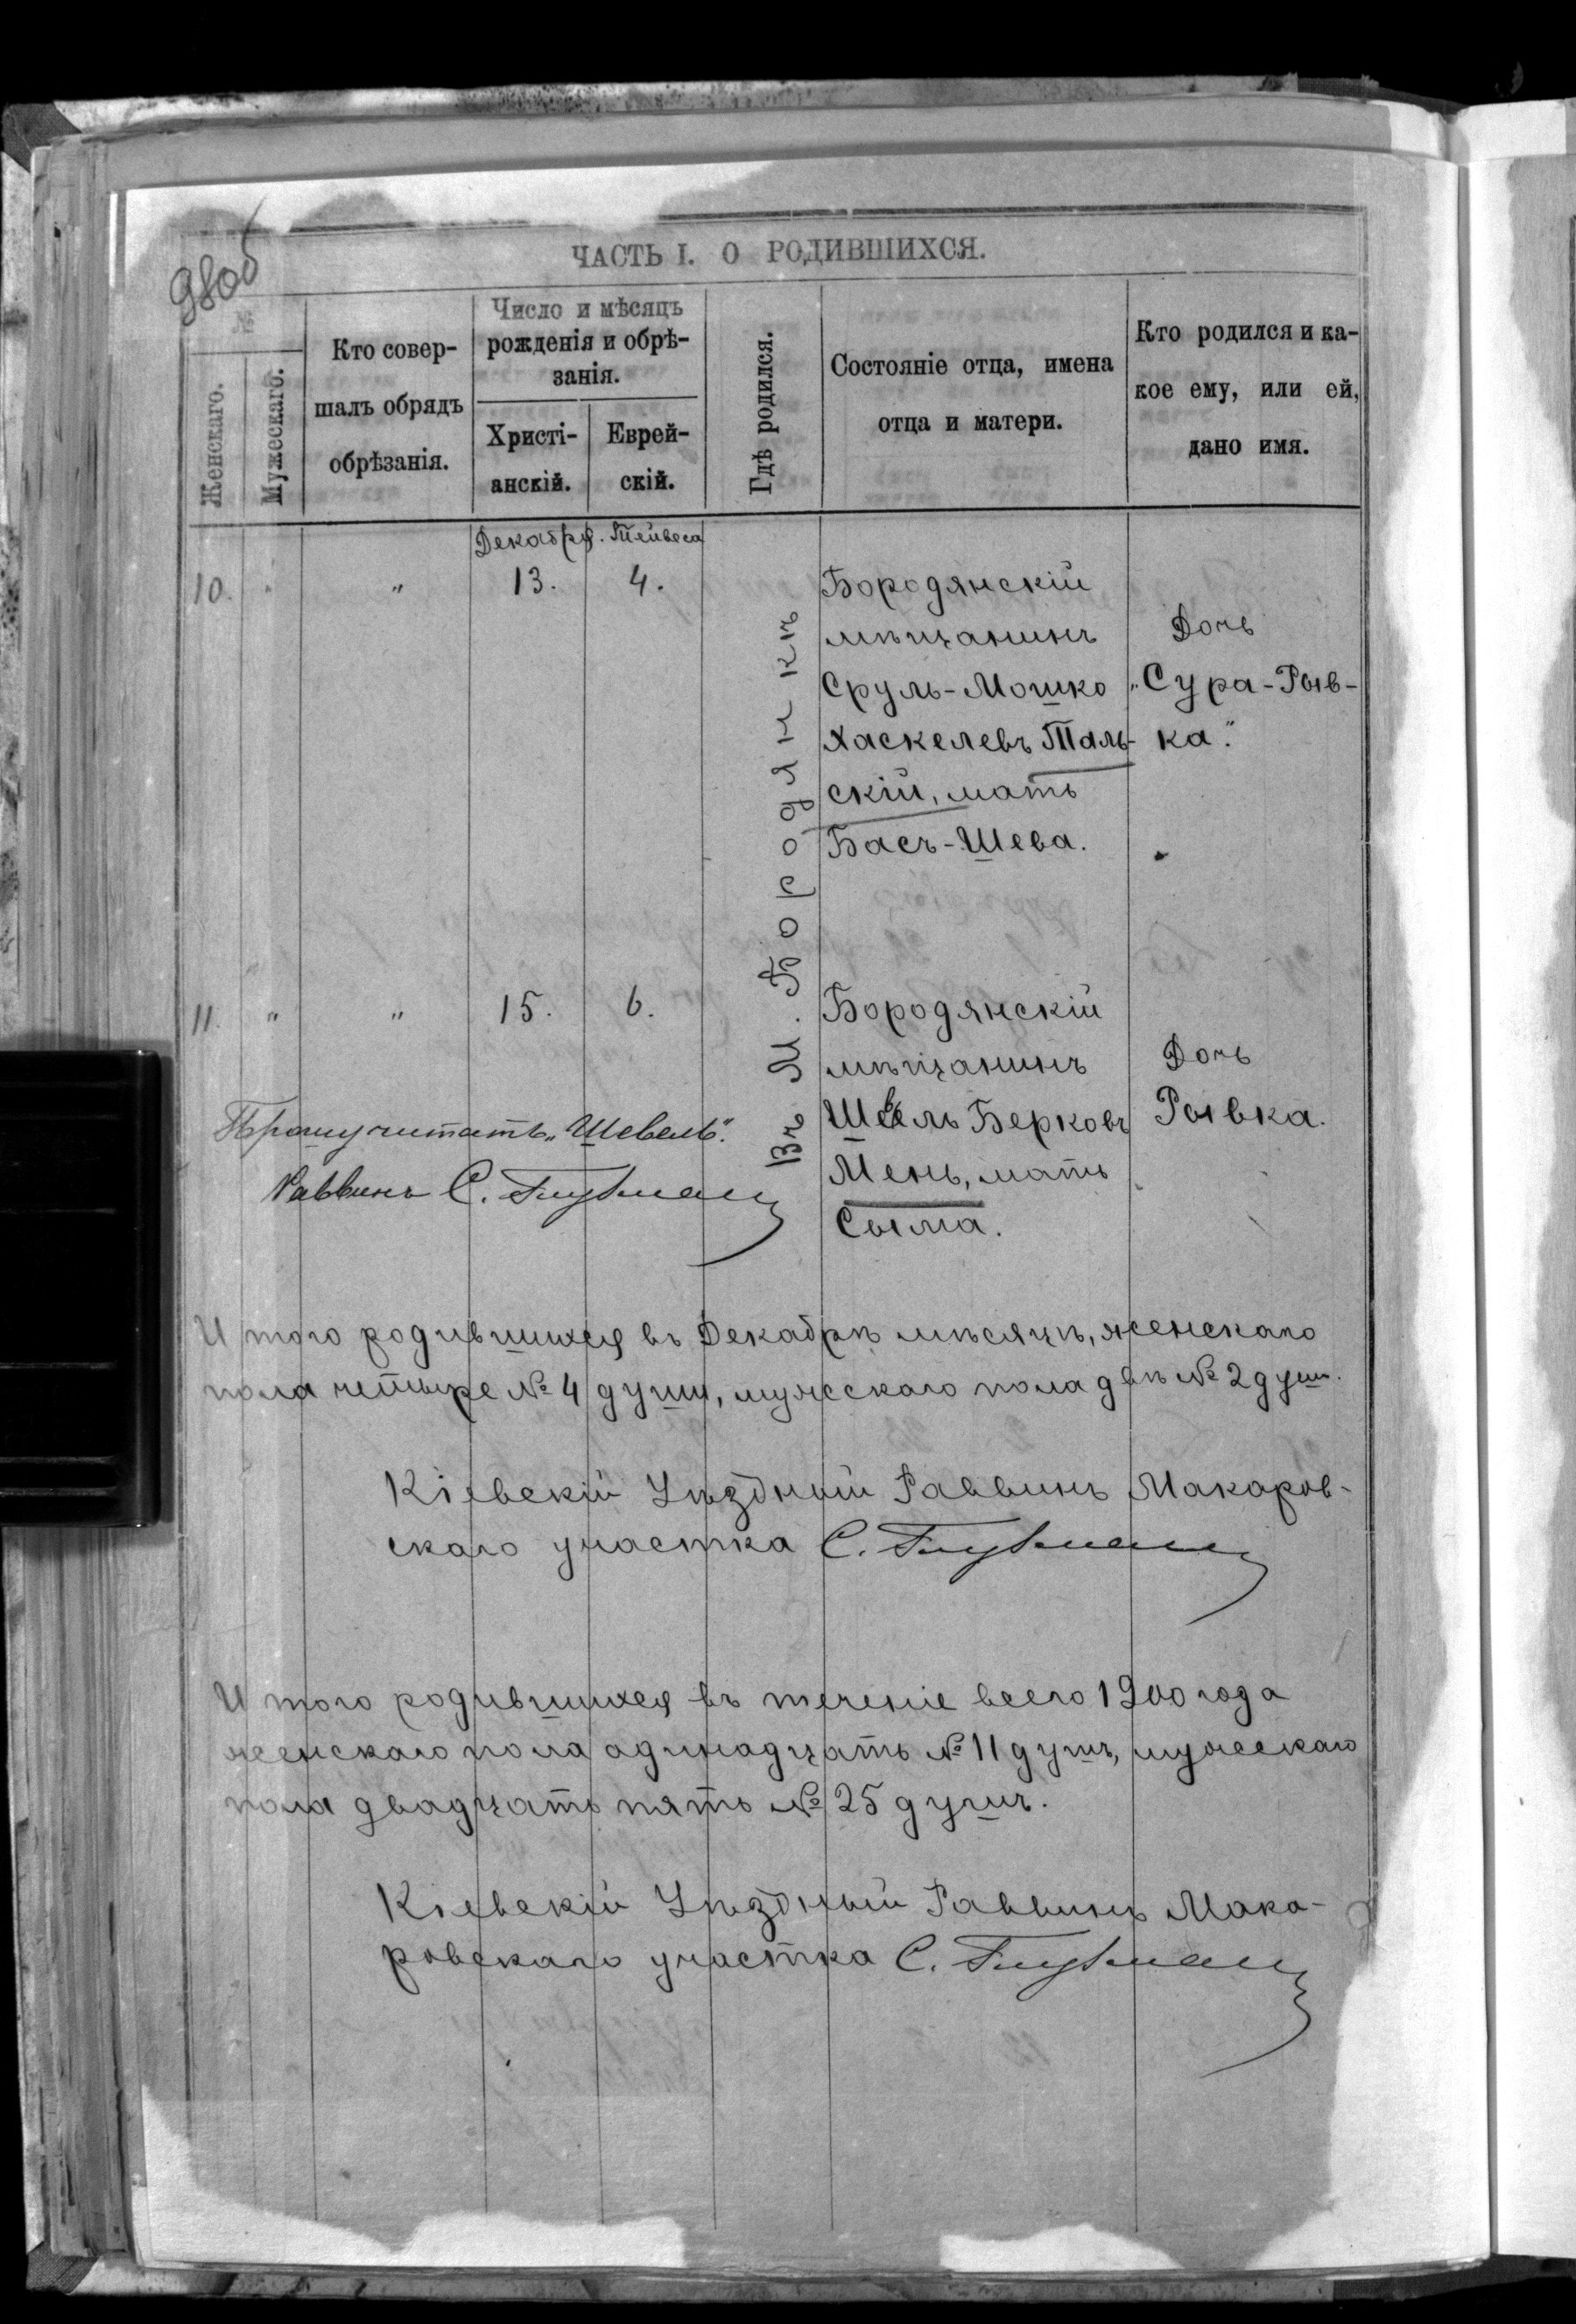 98об
ЧАСТЬ I. О РОДИВШИХСЯ.
№
Женскаго.
Мужескаго.
Кто совер-
шалъ обрядъ
обрѣзанія.
Число и мѣсяцъ
рожденія и обрѣ-
занія.
Христі-
анскій.
Еврей-
скій.
Гдѣ родился.
Состояніе отца, имена
отца и матери.
Кто родился и ка-
кое ему, или ей,
дано имя.
Декабря. Тейвеса
10. " " 13. 4.
Въ М. Бородянкѣ
Бородянскій
мѣщанинъ
Сруль-Мошко
Хаскелевъ Таль-
скій, мать
Басъ-Шева.
Дочь
"Сура-Рыв-
ка."
11. " " 15. 6.
Бородянскій
мѣщанинъ
Шевель Берковъ
Мень, мать
Сыма.
Дочь
Рывка.
Прошу читать "Шевель".
Раввинъ С.
И того родившихся въ Декабрѣ мѣсяцѣ, женскаго
пола четыре № 4 души, мужескаго пола двѣ № 2 душ.
Кіевскій Уѣздный Раввинъ Макаров-
скаго участка С.
И того родившихся въ теченіе всего 1900 года
женскаго пола одинадцать № 11 душъ, мужескаго
пола двадцать пять № 25 душъ.
Кіевскій Уѣздный Раввинъ Мака-
ровскаго участка С.